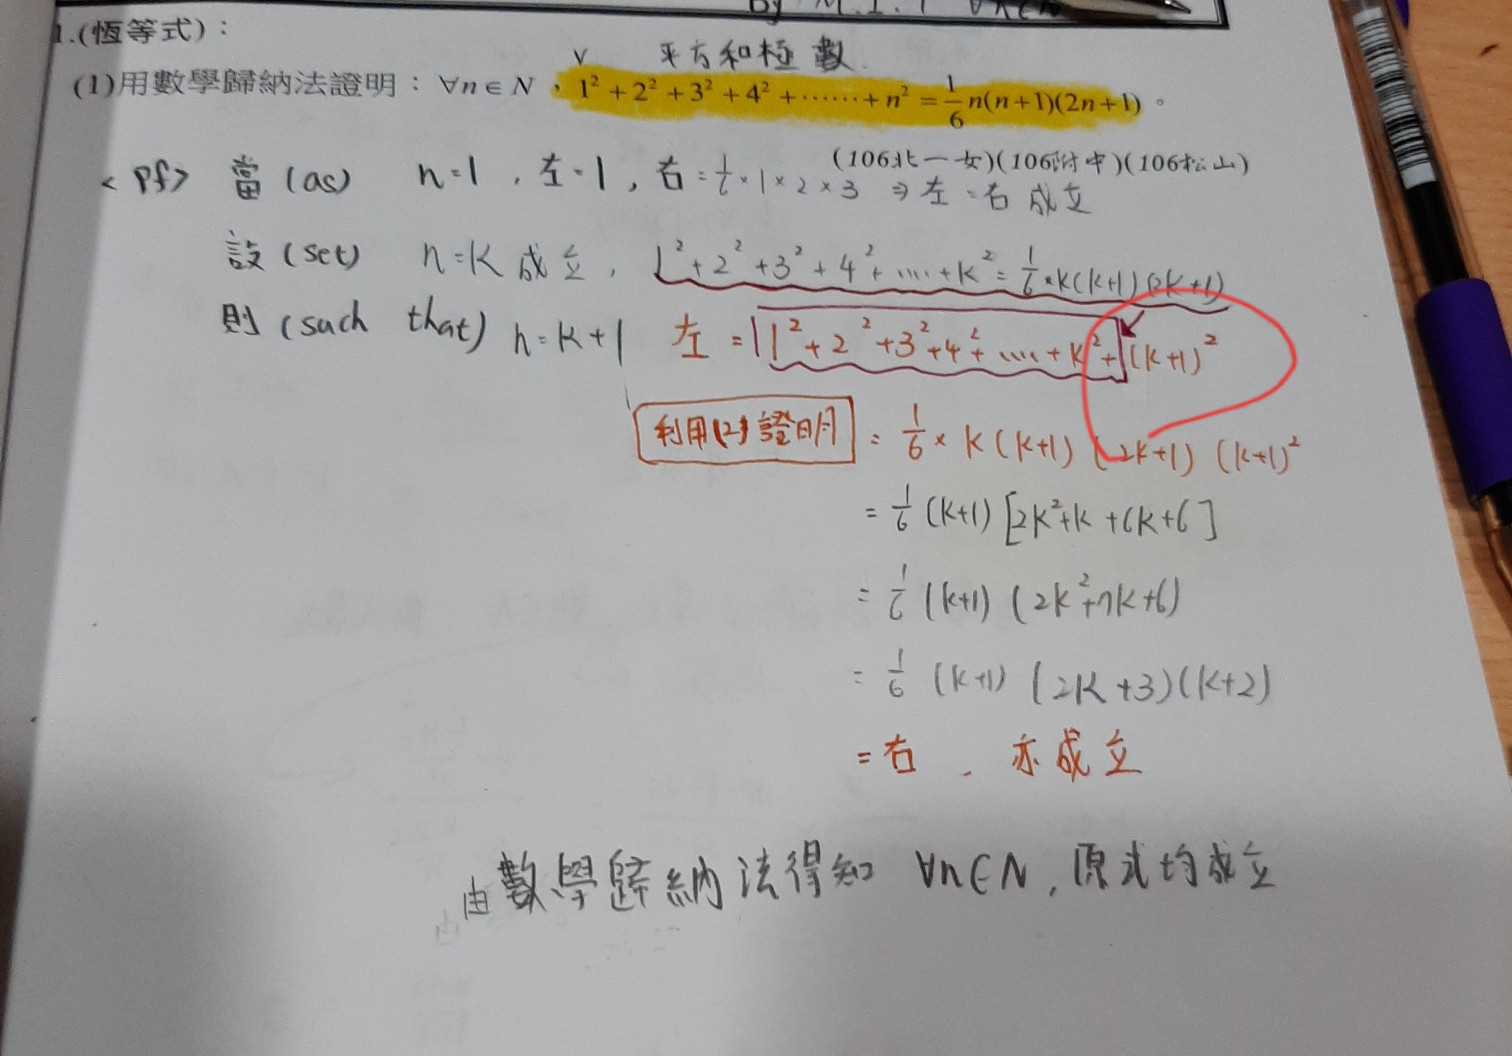 By M.I.
1.(恆等式)：
平方和極數
(1)用數學歸納法證明：∀n∈N，1²+2²+3²+4²+……+n²=1/6n(n+1)(2n+1)。
(106北一女)(106附中)(106松山)
<pf> 當(as) n=1，左=1，右=1/6×1×2×3 ⇒左=右 成立
設(set) n=k 成立，1²+2²+3²+4²+....+k²=1/6×k(k+1)(2k+1)
則(such that) n=k+1 左=1²+2²+3²+4²+....+k²+(k+1)²
利用(2)證明 =1/6×k(k+1)(2k+1)(k+1)²
=1/6(k+1)[2k²+k+6k+6]
=1/6(k+1)(2k²+7k+6)
=1/6(k+1)(2k+3)(k+2)
=右，亦成立
由數學歸納法得知 ∀n∈N，原式均成立